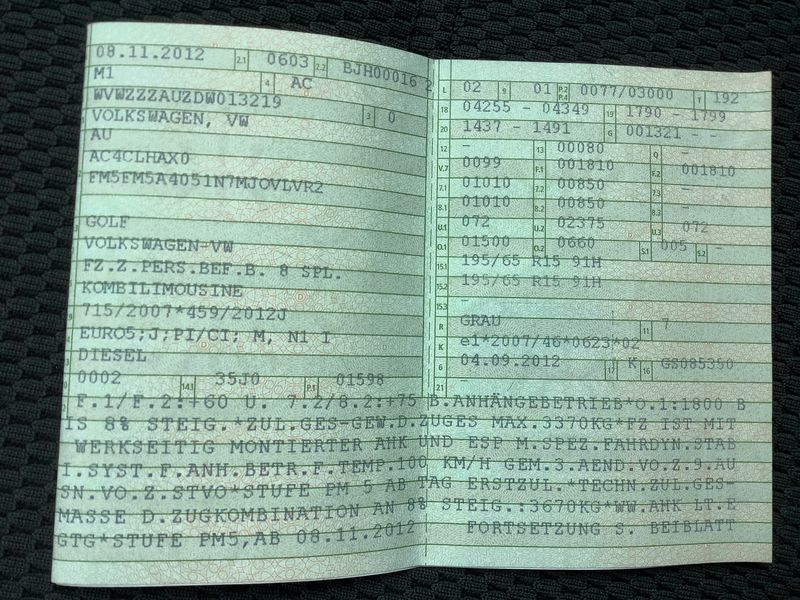 08.11.2012 2.1 0603 2.2 BJH00016 2
M1 4 AC
WVWZZZAUZDW013219
VOLKSWAGEN, VW 3 0
AU
AC4CLHAX0
FM5FM5A4051N7MJOVLVR2
GOLF
VOLKSWAGEN-VW
FZ.Z.PERS.BEF.B. 8 SPL.
KOMBILIMOUSINE
715/2007*459/2012J
EURO5;J;PI/CI; M, N1 I
DIESEL
0002 14.1 35J0 P.1 01598
L 02 9 01 P.2 P.4 0077/03000 T 192
18 04255 - 04349 19 1790 - 1799
20 1437 - 1491 G 001321 - -
12 - 13 00080 Q -
V.7 0099 F.1 001810 F.2 001810
7.1 01010 7.2 00850 7.3 -
8.1 01010 8.2 00850 8.3 -
U.1 072 U.2 02375 U.3 072
O.1 01500 O.2 0660 S.1 005 S.2 -
15.1 195/65 R15 91H
15.2 195/65 R15 91H
15.3 -
R GRAU 11 7
K e1*2007/46*0623*02
6 04.09.2012 17 K 16 GS085350
21 -
F.1/F.2:+60 U. 7.2/8.2:+75 B.ANHÄNGEBETRIEB*O.1:1800 B
IS 8% STEIG.*ZUL.GES-GEW.D.ZUGES MAX.3370KG*FZ IST MIT
WERKSEITIG MONTIERTER AHK UND ESP M.SPEZ.FAHRDYN.STAB
I.SYST.F.ANH.BETR.F.TEMP.100 KM/H GEM.3.AEND.VO.Z.9.AU
SN.VO.Z.STVO*STUFE PM 5 AB TAG ERSTZUL.*TECHN.ZUL.GES-
MASSE D.ZUGKOMBINATION AN 8% STEIG.:3670KG*WW.AHK LT.E
GTG*STUFE PM5,AB 08.11.2012 FORTSETZUNG S. BEIBLATT